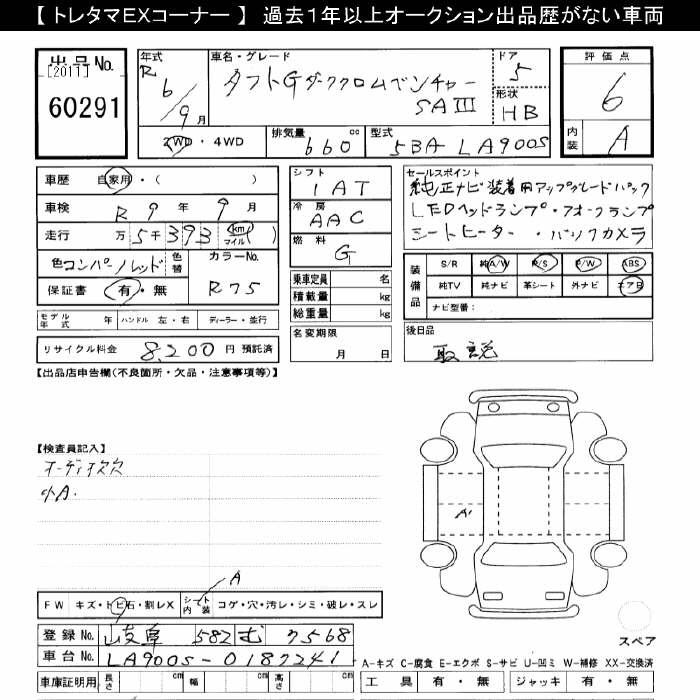 【 トレタマEXコーナー 】 過去1年以上オークション出品歴がない車両
出品 No.
[2011]
60291
年式
R 6/9月
車名・グレード
タフトGダーククロムベンチャー
SAIII
ドア
5
形状
HB
評価点
6
内装
A
2WD・4WD
排気量 660 cc
型式 5BA-LA900S
車歴 自家用・( )
車検 R 9 年 9 月
走行 万 5千393 (km マイル)
色 コンパーノレッド 色替
カラーNo.
R75
保証書 有・無
シフト
1AT
冷房
AAC
燃料
G
乗車定員 名
積載量 kg
総重量 kg
セールスポイント
純正ナビ装着用アップグレードパック
LEDヘッドランプ・フォグランプ
シートヒーター・バックカメラ
装備品
S/R 純A/W P/S P/W ABS
純TV 純ナビ 革シート 外ナビ エアB
ナビ型番:
モデル年式 年 ハンドル 左・右 ディーラー・並行
リサイクル料金 8,200 円 預託済
名変期限
月 日
後日品
取説
【出品店申告欄(不良箇所・欠品・注意事項等)】
【検査員記入】
オーディオ欠
小A.
A'
A
FW キズ・トビ石・割レX
シート内装 コゲ・穴・汚レ・シミ・破レ・スレ
スペア
登録 No. 岐阜 582 む 7568
車台 No. LA900S-0187241
A-キズ C-腐食 E-エクボ S-サビ U-凹ミ W-補修 XX-交換済
車庫証明用 長さ cm 幅 cm 高さ cm
工具 有・無 ジャッキ 有・無